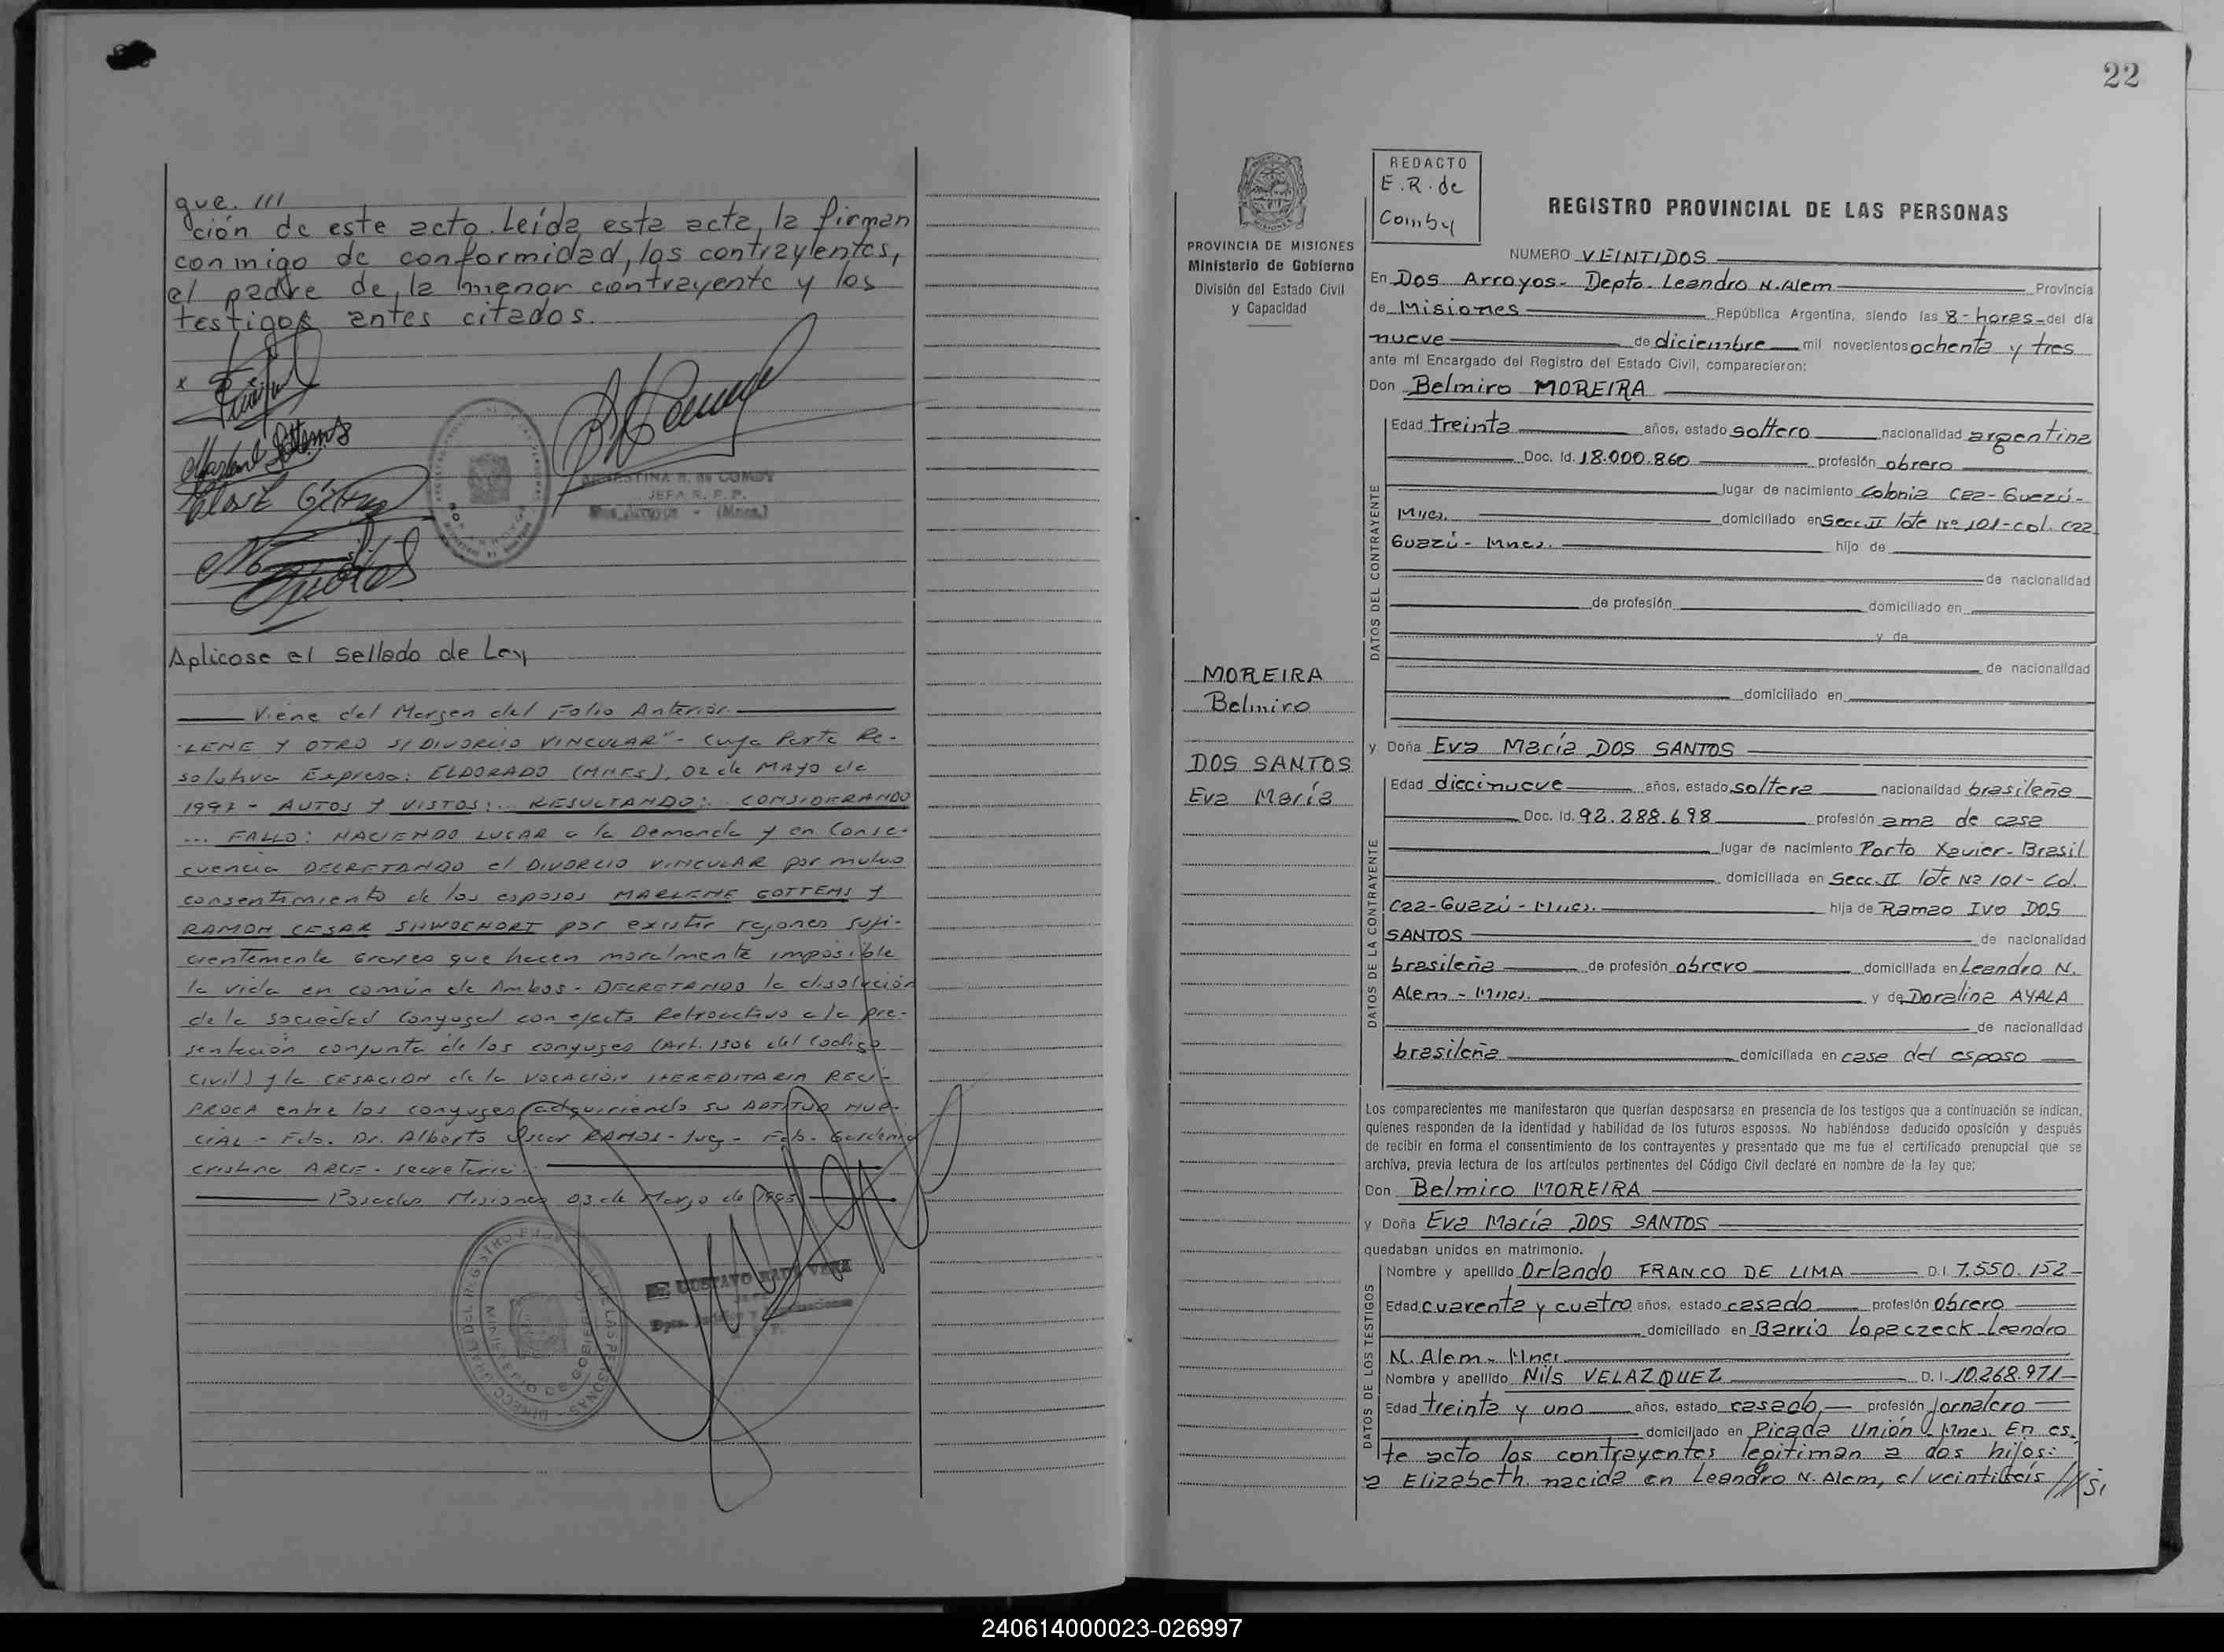 que. ///
ción de este acto. Leída esta acta, la firman
conmigo de conformidad, los contrayentes,
el padre de la menor contrayente y los
testigos antes citados.
ERNESTINA R. de COMBY
JEFA R. P. P.
Dos Arroyos - (Mnes.)
Aplicose el Sellado de Ley
Viene del Margen del Folio Anterior.
LENE Y OTRO S/ DIVORCIO VINCULAR" - Cuya Parte Re-
solutiva Expresa: ELDORADO (MNES), 02 de MAYO de
1997 - AUTOS Y VISTOS: .. RESULTANDO: .. CONSIDERANDO
... FALLO: HACIENDO LUGAR a la Demanda y en Conse-
cuencia DECRETANDO el DIVORCIO VINCULAR por mutuo
consentimiento de los esposos MARLENE GOTTEMS Y
RAMON CESAR por existir razones sufi-
cientemente Graves que hacen moralmente imposible
la vida en común de Ambos - DECRETANDO la disolución
de la sociedad Conyugal con efecto Retroactivo a la pre-
sentación conjunta de los conyuges (Art. 1306 del Codigo
Civil) y la CESACION de la VOCACION HEREDITARIA RECI-
PROCA entre los conyuges adquiriendo su APTITUD NUP-
CIAL - Fdo. Dr. Alberto Oscar RAMOS - Juez -
Cristina ARCE - Secretaria.
Posadas Misiones 03 de Marzo de
GUSTAVO RAUL VERA
22
REDACTO
E.R. de
Comby
REGISTRO PROVINCIAL DE LAS PERSONAS
PROVINCIA DE MISIONES
Ministerio de Gobierno
División del Estado Civil
y Capacidad
NUMERO VEINTIDOS
En Dos Arroyos - Depto. Leandro N. Alem Provincia
de Misiones República Argentina, siendo las 8 - horas - del día
nueve de diciembre mil novecientos ochenta y tres
ante mí Encargado del Registro del Estado Civil, comparecieron:
Don Belmiro MOREIRA
DATOS DEL CONTRAYENTE
Edad treinta años, estado soltero nacionalidad argentina
Doc. Id. 18.000.860 profesión obrero
lugar de nacimiento Colonia Caa-Guazú-
Mnes. domiciliado en Secc. II lote Nº 101 - col. Caa
Guazú - Mnes. hijo de
de nacionalidad
de profesión domiciliado en
y de
de nacionalidad
domiciliado en
MOREIRA
Belmiro
DOS SANTOS
Eva María
y Doña Eva María DOS SANTOS
DATOS DE LA CONTRAYENTE
Edad diecinueve años, estado soltera nacionalidad brasileña
Doc. Id. 92.288.698 profesión ama de casa
lugar de nacimiento Porto Xavier - Brasil
domiciliada en Secc. II lote Nº 101 - Col.
Caa-Guazú - Mnes. hija de Ramao Ivo DOS
SANTOS de nacionalidad
brasileña de profesión obrero domiciliada en Leandro N.
Alem - Mnes. y de Doralina AYALA
de nacionalidad
brasileña domiciliada en casa del esposo
Los comparecientes me manifestaron que querían desposarse en presencia de los testigos que a continuación se indican,
quienes responden de la identidad y habilidad de los futuros esposos. No habiéndose deducido oposición y después
de recibir en forma el consentimiento de los contrayentes y presentado que me fue el certificado prenupcial que se
archiva, previa lectura de los artículos pertinentes del Código Civil declaré en nombre de la ley que:
Don Belmiro MOREIRA
y Doña Eva María DOS SANTOS
quedaban unidos en matrimonio.
DATOS DE LOS TESTIGOS
Nombre y apellido Orlando FRANCO DE LIMA D.I. 7.550.152
Edad cuarenta y cuatro años, estado casado profesión obrero
domiciliado en Barrio Lopaczeck - Leandro
N. Alem - Mnes.
Nombre y apellido Nils VELAZQUEZ D. I. 10.268.971
Edad treinta y uno años, estado casado profesión jornalero
domiciliado en Picada Unión - Mnes. En es-
te acto los contrayentes legitiman a dos hijos:
a Elizabeth nacida en Leandro N. Alem, el veintiseis ///si
240614000023-026997